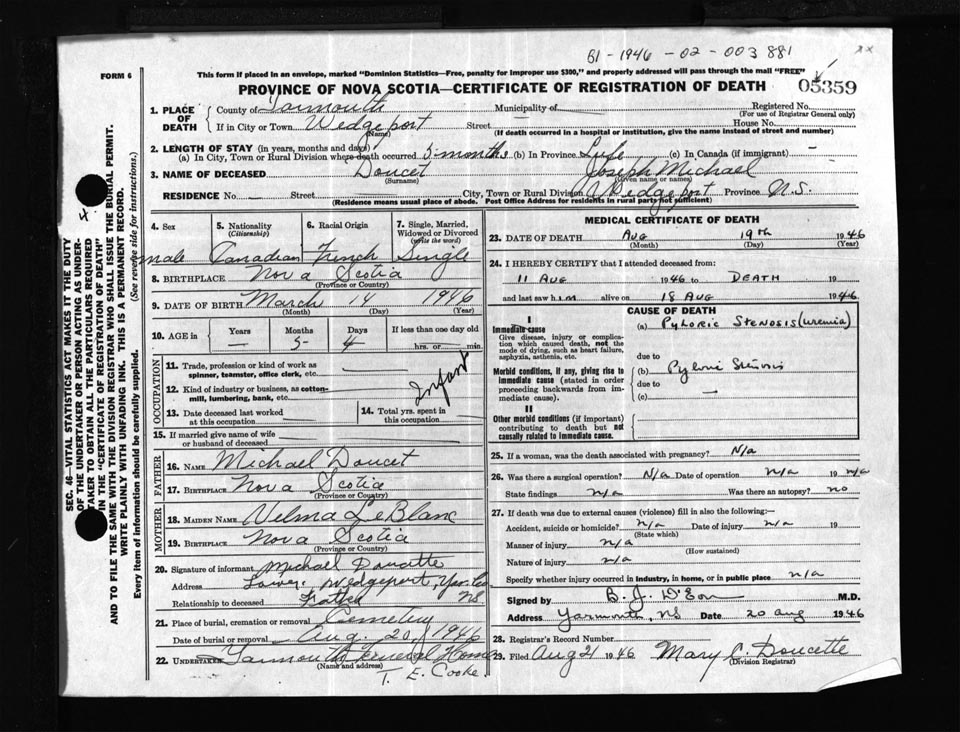 B1-1946-02-003881
FORM 6
This form if placed in an envelope, marked "Dominion Statistics—Free, penalty for improper use $300," and properly addressed will pass through the mail "FREE"
PROVINCE OF NOVA SCOTIA—CERTIFICATE OF REGISTRATION OF DEATH
05359
SEC. 46—VITAL STATISTICS ACT MAKES IT THE DUTY
OF THE UNDERTAKER OR PERSON ACTING AS UNDER-
TAKER TO OBTAIN ALL THE PARTICULARS REQUIRED
IN THE "CERTIFICATE OF REGISTRATION OF DEATH"
AND TO FILE THE SAME WITH THE DIVISION REGISTRAR WHO SHALL ISSUE THE BURIAL PERMIT.
WRITE PLAINLY WITH UNFADING INK. THIS IS A PERMANENT RECORD.
Every item of information should be carefully supplied. (See reverse side for instructions.)
1. PLACE OF DEATH
County of Yarmouth Municipality of — Registered No.
(For use of Registrar General only)
If in City or Town Wedgeport Street House No.
(Name) (If death occurred in a hospital or institution, give the name instead of street and number)
2. LENGTH OF STAY (in years, months and days)
(a) In City, Town or Rural Division where death occurred 5-months (b) In Province Life (c) In Canada (if immigrant) —
3. NAME OF DECEASED Doucet Joseph Michael
(Surname) (Given name or names)
RESIDENCE No. — Street City, Town or Rural Division Wedgeport Province N.S.
(Residence means usual place of abode. Post Office Address for residents in rural parts not sufficient)
4. Sex 5. Nationality (Citizenship) 6. Racial Origin 7. Single, Married, Widowed or Divorced (write the word)
male Canadian French Single
8. BIRTHPLACE Nova Scotia
(Province or Country)
9. DATE OF BIRTH March 14 1946
(Month) (Day) (Year)
10. AGE in Years Months Days If less than one day old
— 5- 4 hrs. or min.
OCCUPATION
11. Trade, profession or kind of work as spinner, teamster, office clerk, etc.
12. Kind of industry or business, as cotton-mill, lumbering, bank, etc.
Infant
13. Date deceased last worked at this occupation 14. Total yrs. spent in this occupation
15. If married give name of wife or husband of deceased
FATHER
16. NAME Michael Doucet
17. BIRTHPLACE Nova Scotia
(Province or Country)
MOTHER
18. MAIDEN NAME Velma LeBlanc
19. BIRTHPLACE Nova Scotia
(Province or Country)
20. Signature of informant Michael Doucette
Address Lower Wedgeport, Yar. Co NS.
Relationship to deceased Father
21. Place of burial, cremation or removal Cemetery
Date of burial or removal Aug. 20, 1946
22. UNDERTAKER Yarmouth Funeral Home
(Name and address)
T. E. Cooke
MEDICAL CERTIFICATE OF DEATH
23. DATE OF DEATH Aug 19th 1946
(Month) (Day) (Year)
24. I HEREBY CERTIFY that I attended deceased from:
11 Aug 1946 to DEATH 19
and last saw him alive on 18 Aug 1946
CAUSE OF DEATH
I
Immediate cause
Give disease, injury or complication which caused death, not the mode of dying, such as heart failure, asphyxia, asthenia, etc.
(a) Pyloric Stenosis (uremia)
due to
Morbid conditions, if any, giving rise to immediate cause (stated in order proceeding backwards from immediate cause).
(b) Pyloric Stenosis
due to
(c) —
II
Other morbid conditions (if important) contributing to death but not causally related to immediate cause.
25. If a woman, was the death associated with pregnancy? N/a
26. Was there a surgical operation? N/a Date of operation n/a 19 n/a
State findings n/a Was there an autopsy? no
27. If death was due to external causes (violence) fill in also the following:—
Accident, suicide or homicide? n/a Date of injury n/a 19
(State which)
Manner of injury n/a
(How sustained)
Nature of injury n/a
Specify whether injury occurred in industry, in home, or in public place n/a
Signed by B. J. D'Eon M.D.
Address Yarmouth, NS Date 20 Aug 1946
28. Registrar's Record Number
29. Filed Aug 21 1946 Mary C. Doucette
(Division Registrar)